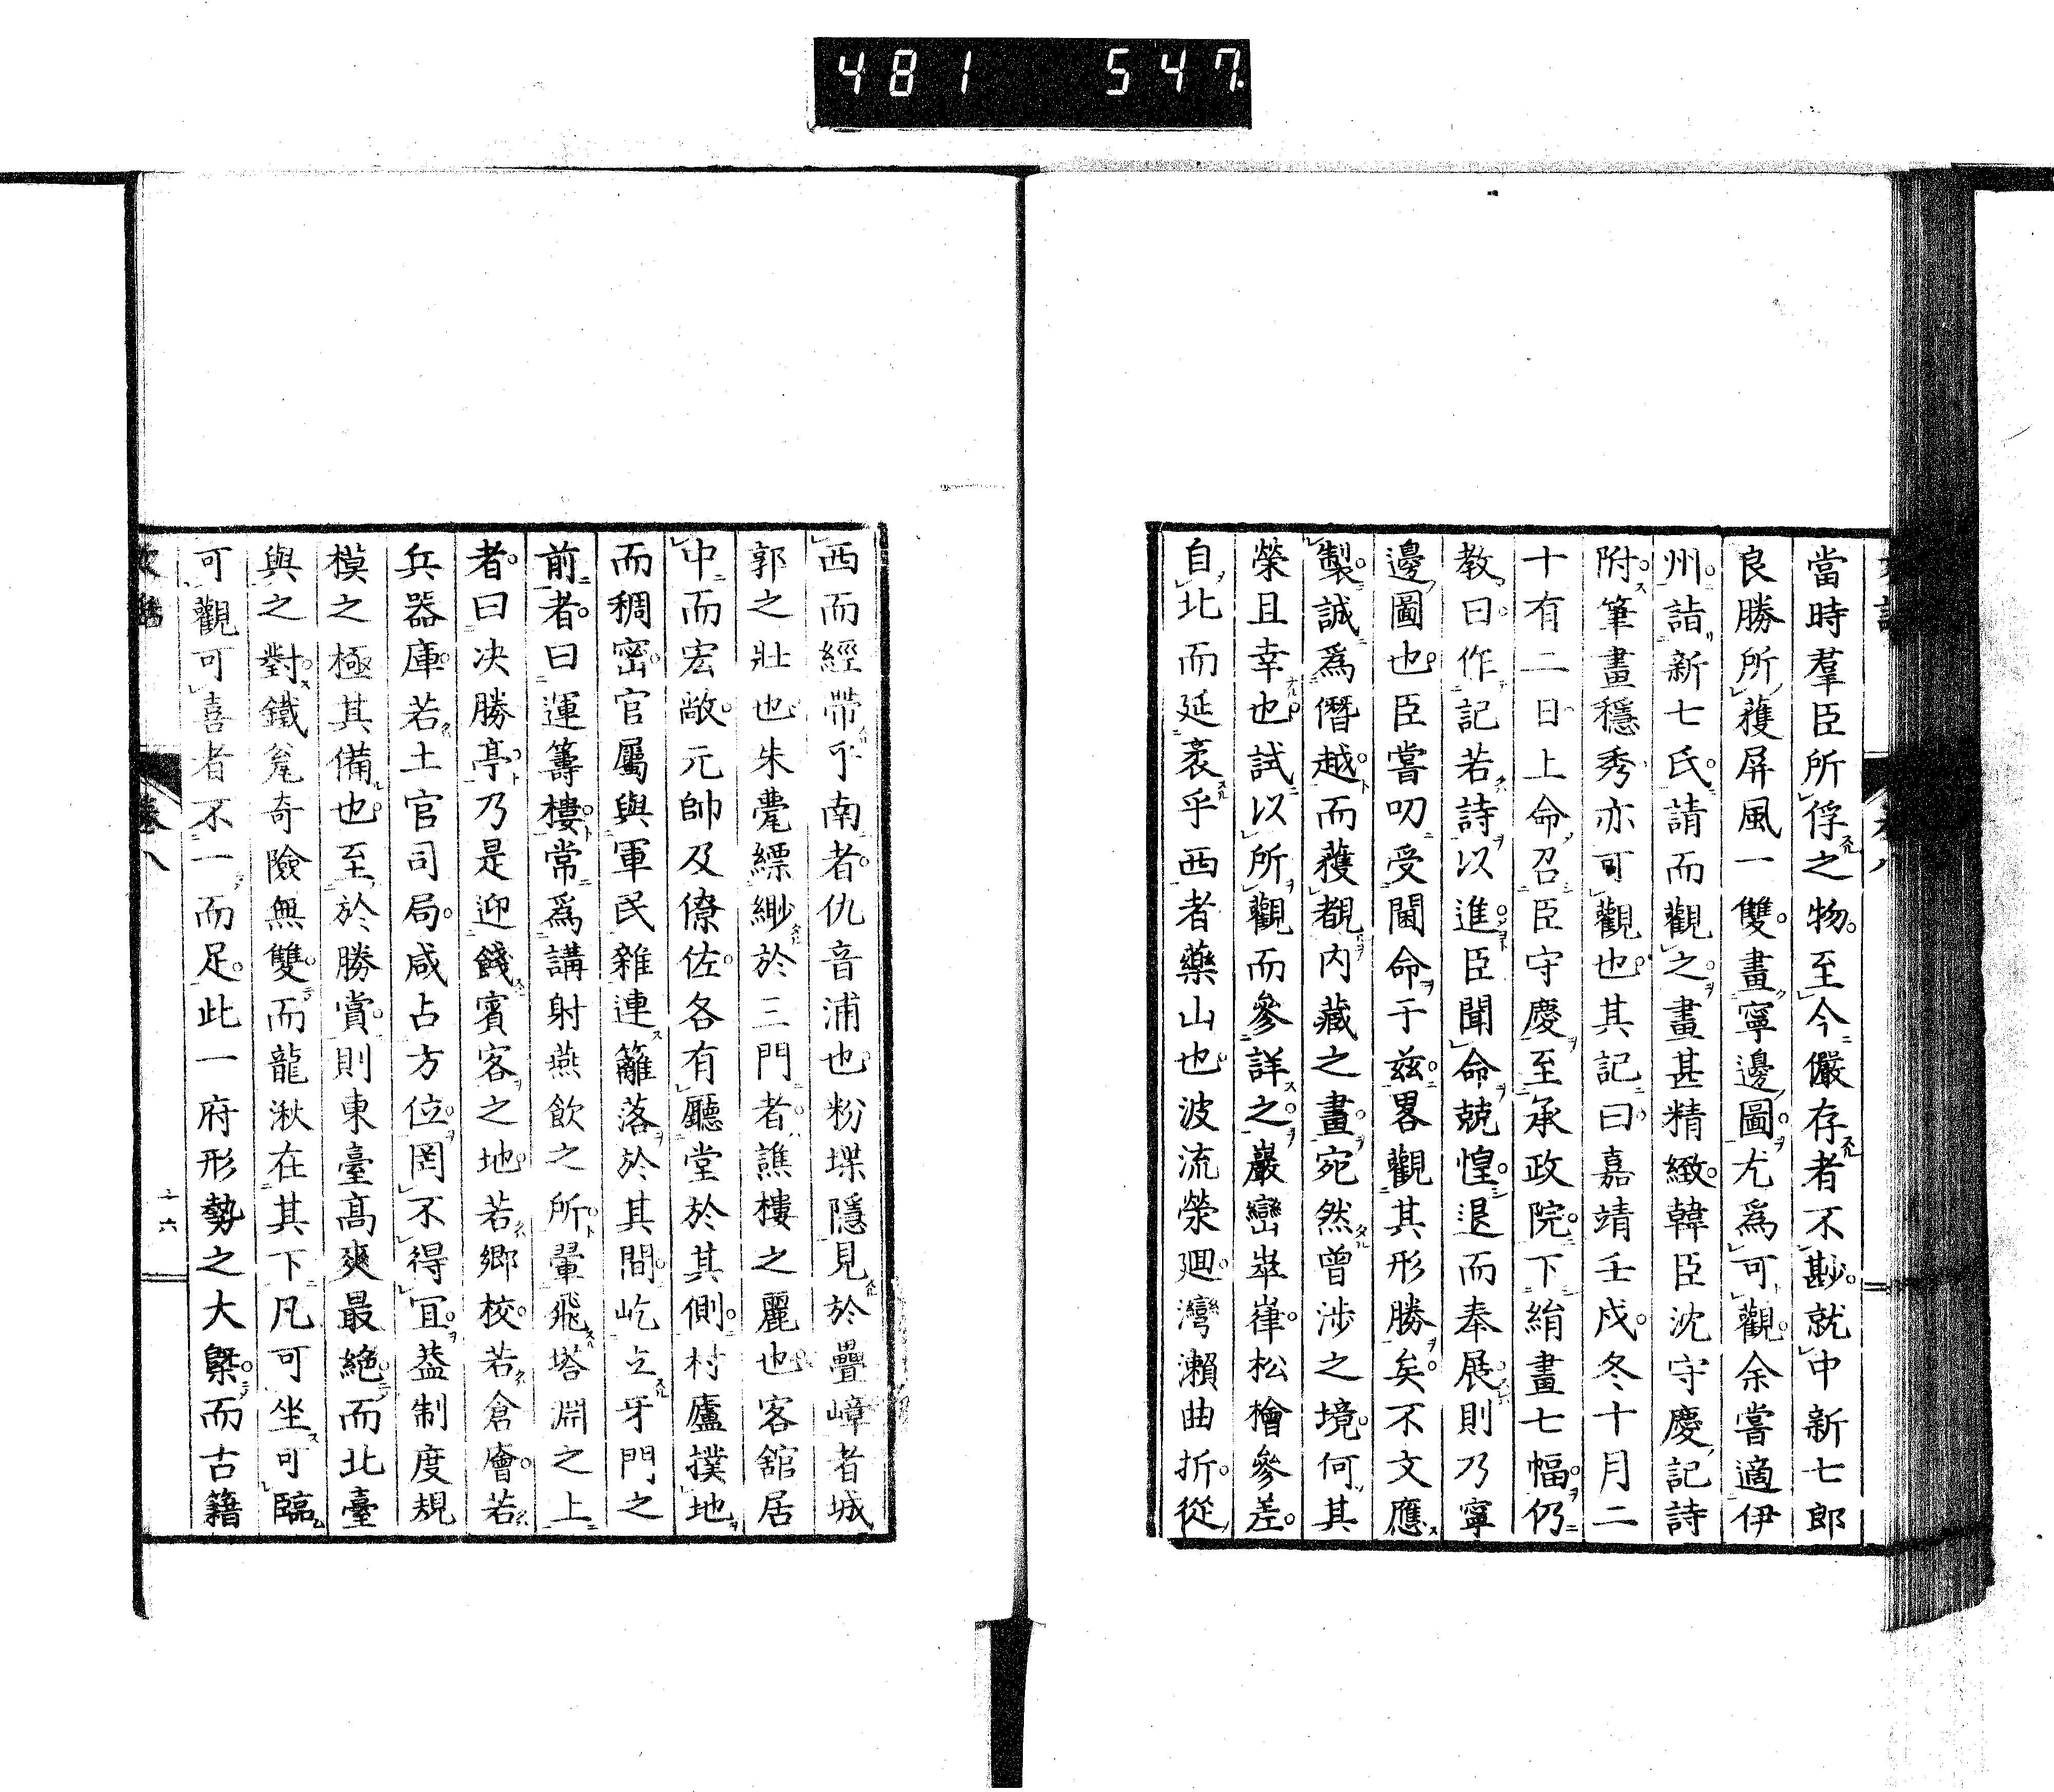 481 547
當時羣臣所俘之物至今儼存者不尠就中新七郎
良勝所獲屏風一雙畫寧邊圖尤爲可觀余嘗適伊
州詣新七氏請而觀之畫甚精緻韓臣沈守慶記詩
附筆畫穩秀亦可觀也其記曰嘉靖壬戌冬十月二
十有二日上命召臣守慶至承政院下綃畫七幅仍
教曰作記若詩以進臣聞命兢惶退而奉展則乃寧
邊圖也臣嘗叨受閫命于茲畧觀其形勝矣不文應
製誠爲僭越而獲覩內藏之畫宛然曾涉之境何其
榮且幸也試以所觀而參詳之巖巒崒嵂松檜參差
自北而延袤乎西者藥山也波流滎廻灣瀨曲折從
西而經帶乎南者仇音浦也粉堞隱見於疊嶂者城
郭之壯也朱甍縹緲於三門者譙樓之麗也客舘居
中而宏敞元帥及僚佐各有廳堂於其側村廬撲地
而稠密官屬與軍民雜連籬落於其間屹立牙門之
前者曰運籌樓常爲講射燕飮之所翬飛塔淵之上
者曰决勝亭乃是迎餞賓客之地若鄕校若倉廥若
兵器庫若土官司局咸占方位罔不得宜葢制度規
模之極其備也至於勝賞則東臺高爽最絶而北臺
與之對鐵瓮奇險無雙而龍湫在其下凡可坐可臨
可觀可喜者不一而足此一府形勢之大槩而古籍
卷八
十六